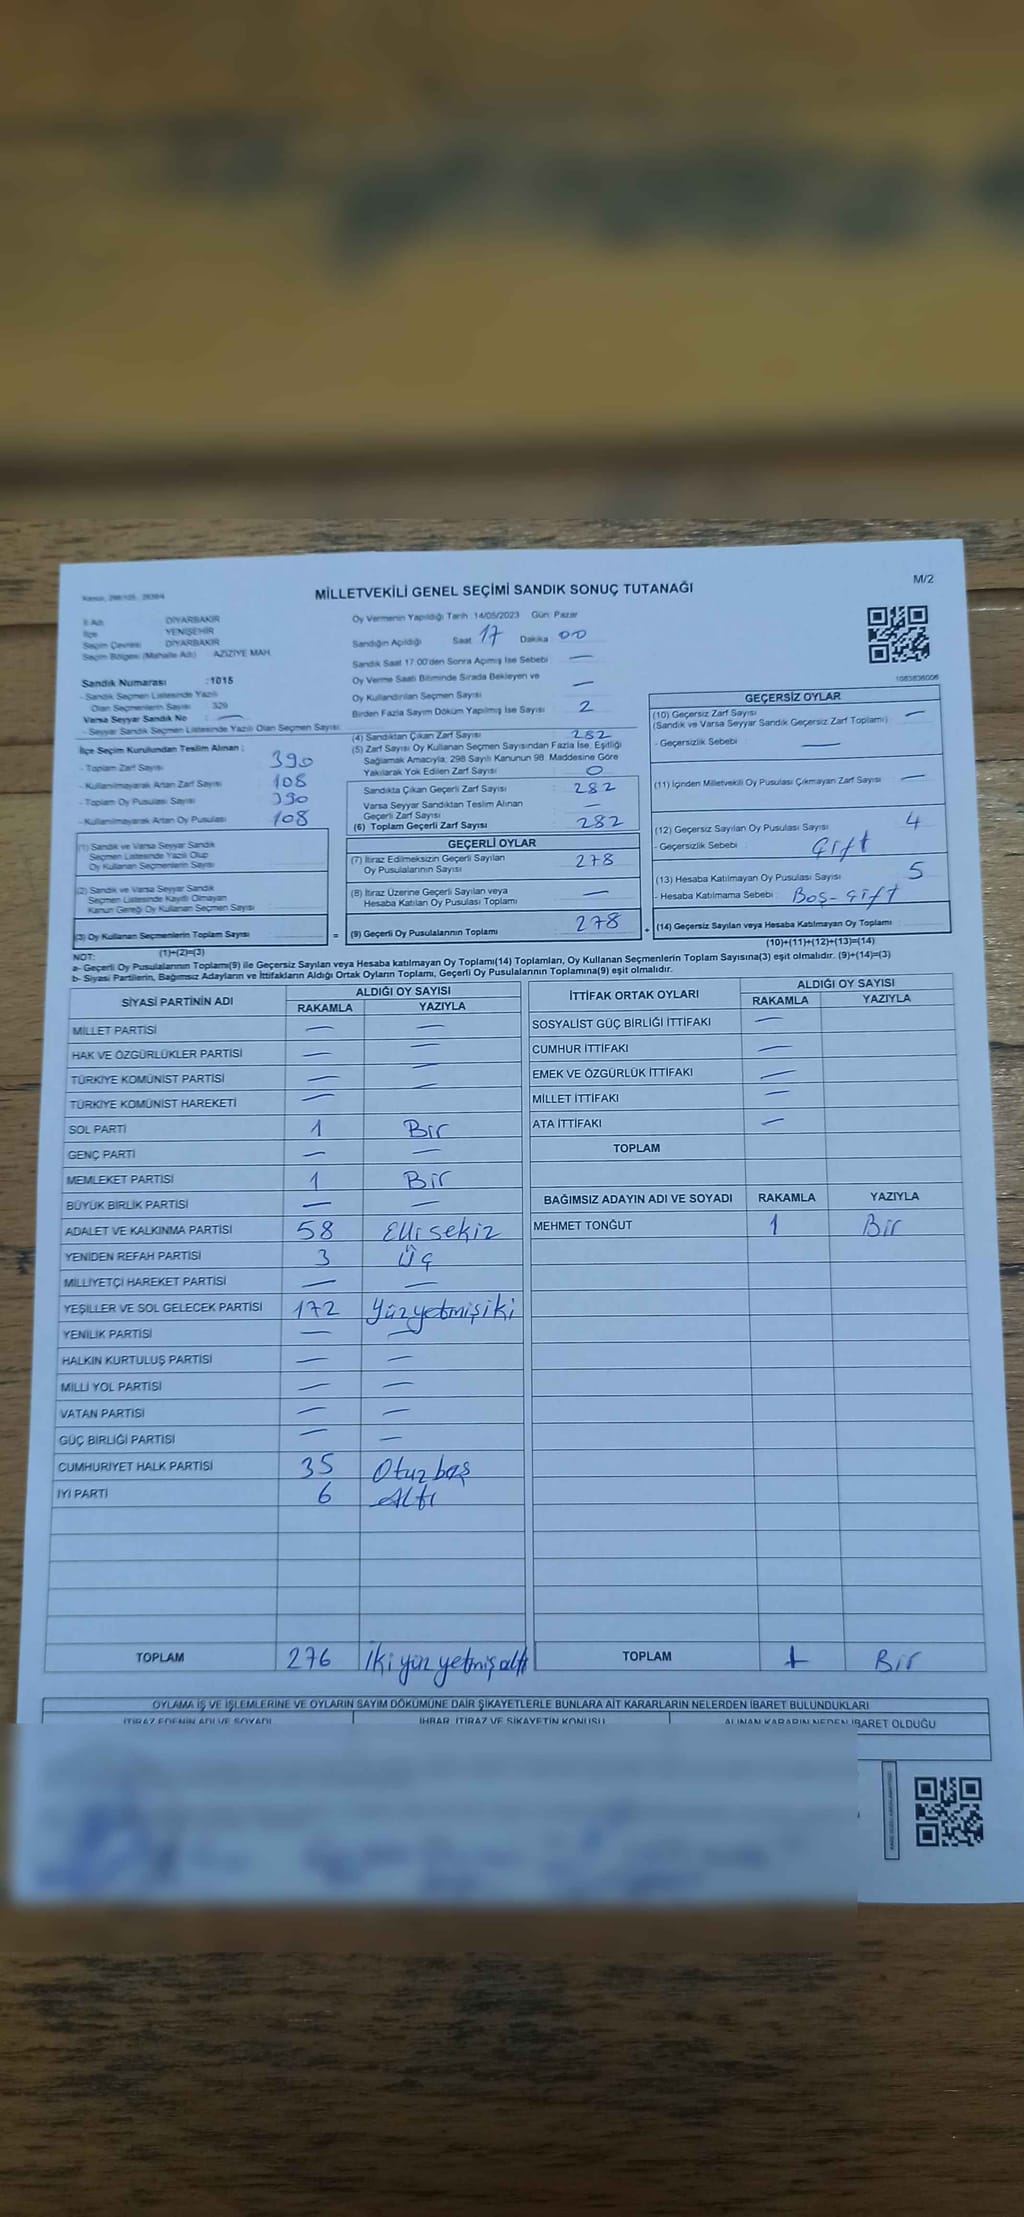 MİLLETVEKİLİ GENEL SEÇİMİ SANDIK SONUÇ TUTANAĞI
M/2
İl Adı DİYARBAKIR
İlçe YENİŞEHİR
Seçim Çevresi DİYARBAKIR
Seçim Bölgesi (Mahalle Adı) AZİZİYE MAH.
Sandık Numarası :1015
- Sandık Seçmen Listesinde Yazılı
Olan Seçmenlerin Sayısı 329
Varsa Seyyar Sandık No : —
- Seyyar Sandık Seçmen Listesinde Yazılı Olan Seçmen Sayısı:
İlçe Seçim Kurulundan Teslim Alınan ;
- Toplam Zarf Sayısı 390
- Kullanılmayarak Artan Zarf Sayısı 108
- Toplam Oy Pusulası Sayısı 390
- Kullanılmayarak Artan Oy Pusulası 108
(1) Sandık ve Varsa Seyyar Sandık
Seçmen Listesinde Yazılı Olup
Oy Kullanan Seçmenlerin Sayısı
(2) Sandık ve Varsa Seyyar Sandık
Seçmen Listesinde Kayıtlı Olmayan
Kanun Gereği Oy Kullanan Seçmen Sayısı
(3) Oy Kullanan Seçmenlerin Toplam Sayısı
(1)+(2)=(3)
Oy Vermenin Yapıldığı Tarih :14/05/2023 Gün: Pazar
Sandığın Açıldığı Saat 17 Dakika 00
Sandık Saat 17:00'den Sonra Açılmış İse Sebebi —
Oy Verme Saati Bitiminde Sırada Bekleyen ve
Oy Kullandırılan Seçmen Sayısı —
Birden Fazla Sayım Döküm Yapılmış İse Sayısı 2
(4) Sandıktan Çıkan Zarf Sayısı 282
(5) Zarf Sayısı Oy Kullanan Seçmen Sayısından Fazla İse, Eşitliği
Sağlamak Amacıyla, 298 Sayılı Kanunun 98. Maddesine Göre
Yakılarak Yok Edilen Zarf Sayısı 0
Sandıkta Çıkan Geçerli Zarf Sayısı 282
Varsa Seyyar Sandıktan Teslim Alınan
Geçerli Zarf Sayısı —
(6) Toplam Geçerli Zarf Sayısı 282
GEÇERLİ OYLAR
(7) İtiraz Edilmeksizin Geçerli Sayılan
Oy Pusulalarının Sayısı 278
(8) İtiraz Üzerine Geçerli Sayılan veya
Hesaba Katılan Oy Pusulası Toplamı —
= (9) Geçerli Oy Pusulalarının Toplamı 278 +
1083836006
GEÇERSİZ OYLAR
(10) Geçersiz Zarf Sayısı —
(Sandık ve Varsa Seyyar Sandık Geçersiz Zarf Toplamı)
- Geçersizlik Sebebi —
(11) İçinden Milletvekili Oy Pusulası Çıkmayan Zarf Sayısı —
(12) Geçersiz Sayılan Oy Pusulası Sayısı 4
- Geçersizlik Sebebi : Çift
(13) Hesaba Katılmayan Oy Pusulası Sayısı 5
- Hesaba Katılmama Sebebi : Boş - Çift
(14) Geçersiz Sayılan veya Hesaba Katılmayan Oy Toplamı
(10)+(11)+(12)+(13)=(14)
NOT:
a- Geçerli Oy Pusulalarının Toplamı(9) ile Geçersiz Sayılan veya Hesaba katılmayan Oy Toplamı(14) Toplamları, Oy Kullanan Seçmenlerin Toplam Sayısına(3) eşit olmalıdır. (9)+(14)=(3)
b- Siyasi Partilerin, Bağımsız Adayların ve İttifakların Aldığı Ortak Oyların Toplamı, Geçerli Oy Pusulalarının Toplamına(9) eşit olmalıdır.
SİYASİ PARTİNİN ADI ALDIĞI OY SAYISI
RAKAMLA YAZIYLA
MİLLET PARTİSİ — —
HAK VE ÖZGÜRLÜKLER PARTİSİ — —
TÜRKİYE KOMÜNİST PARTİSİ — —
TÜRKİYE KOMÜNİST HAREKETİ — —
SOL PARTİ 1 Bir
GENÇ PARTİ — —
MEMLEKET PARTİSİ 1 Bir
BÜYÜK BİRLİK PARTİSİ — —
ADALET VE KALKINMA PARTİSİ 58 Elli sekiz
YENİDEN REFAH PARTİSİ 3 Üç
MİLLİYETÇİ HAREKET PARTİSİ — —
YEŞİLLER VE SOL GELECEK PARTİSİ 172 Yüzyetmişiki
YENİLİK PARTİSİ — —
HALKIN KURTULUŞ PARTİSİ — —
MİLLİ YOL PARTİSİ — —
VATAN PARTİSİ — —
GÜÇ BİRLİĞİ PARTİSİ — —
CUMHURİYET HALK PARTİSİ 35 Otuz beş
İYİ PARTİ 6 Altı
TOPLAM 276 İki yüz yetmiş altı
İTTİFAK ORTAK OYLARI ALDIĞI OY SAYISI
RAKAMLA YAZIYLA
SOSYALİST GÜÇ BİRLİĞİ İTTİFAKI —
CUMHUR İTTİFAKI —
EMEK VE ÖZGÜRLÜK İTTİFAKI —
MİLLET İTTİFAKI —
ATA İTTİFAKI —
TOPLAM
BAĞIMSIZ ADAYIN ADI VE SOYADI RAKAMLA YAZIYLA
MEHMET TONĞUT 1 Bir
TOPLAM 1 Bir
OYLAMA İŞ VE İŞLEMLERİNE VE OYLARIN SAYIM DÖKÜMÜNE DAİR ŞİKAYETLERLE BUNLARA AİT KARARLARIN NELERDEN İBARET BULUNDUKLARI
İTİRAZ EDENİN ADI VE SOYADI İHBAR, İTİRAZ VE ŞİKAYETİN KONUSU ALINAN KARARIN NEDEN İBARET OLDUĞU